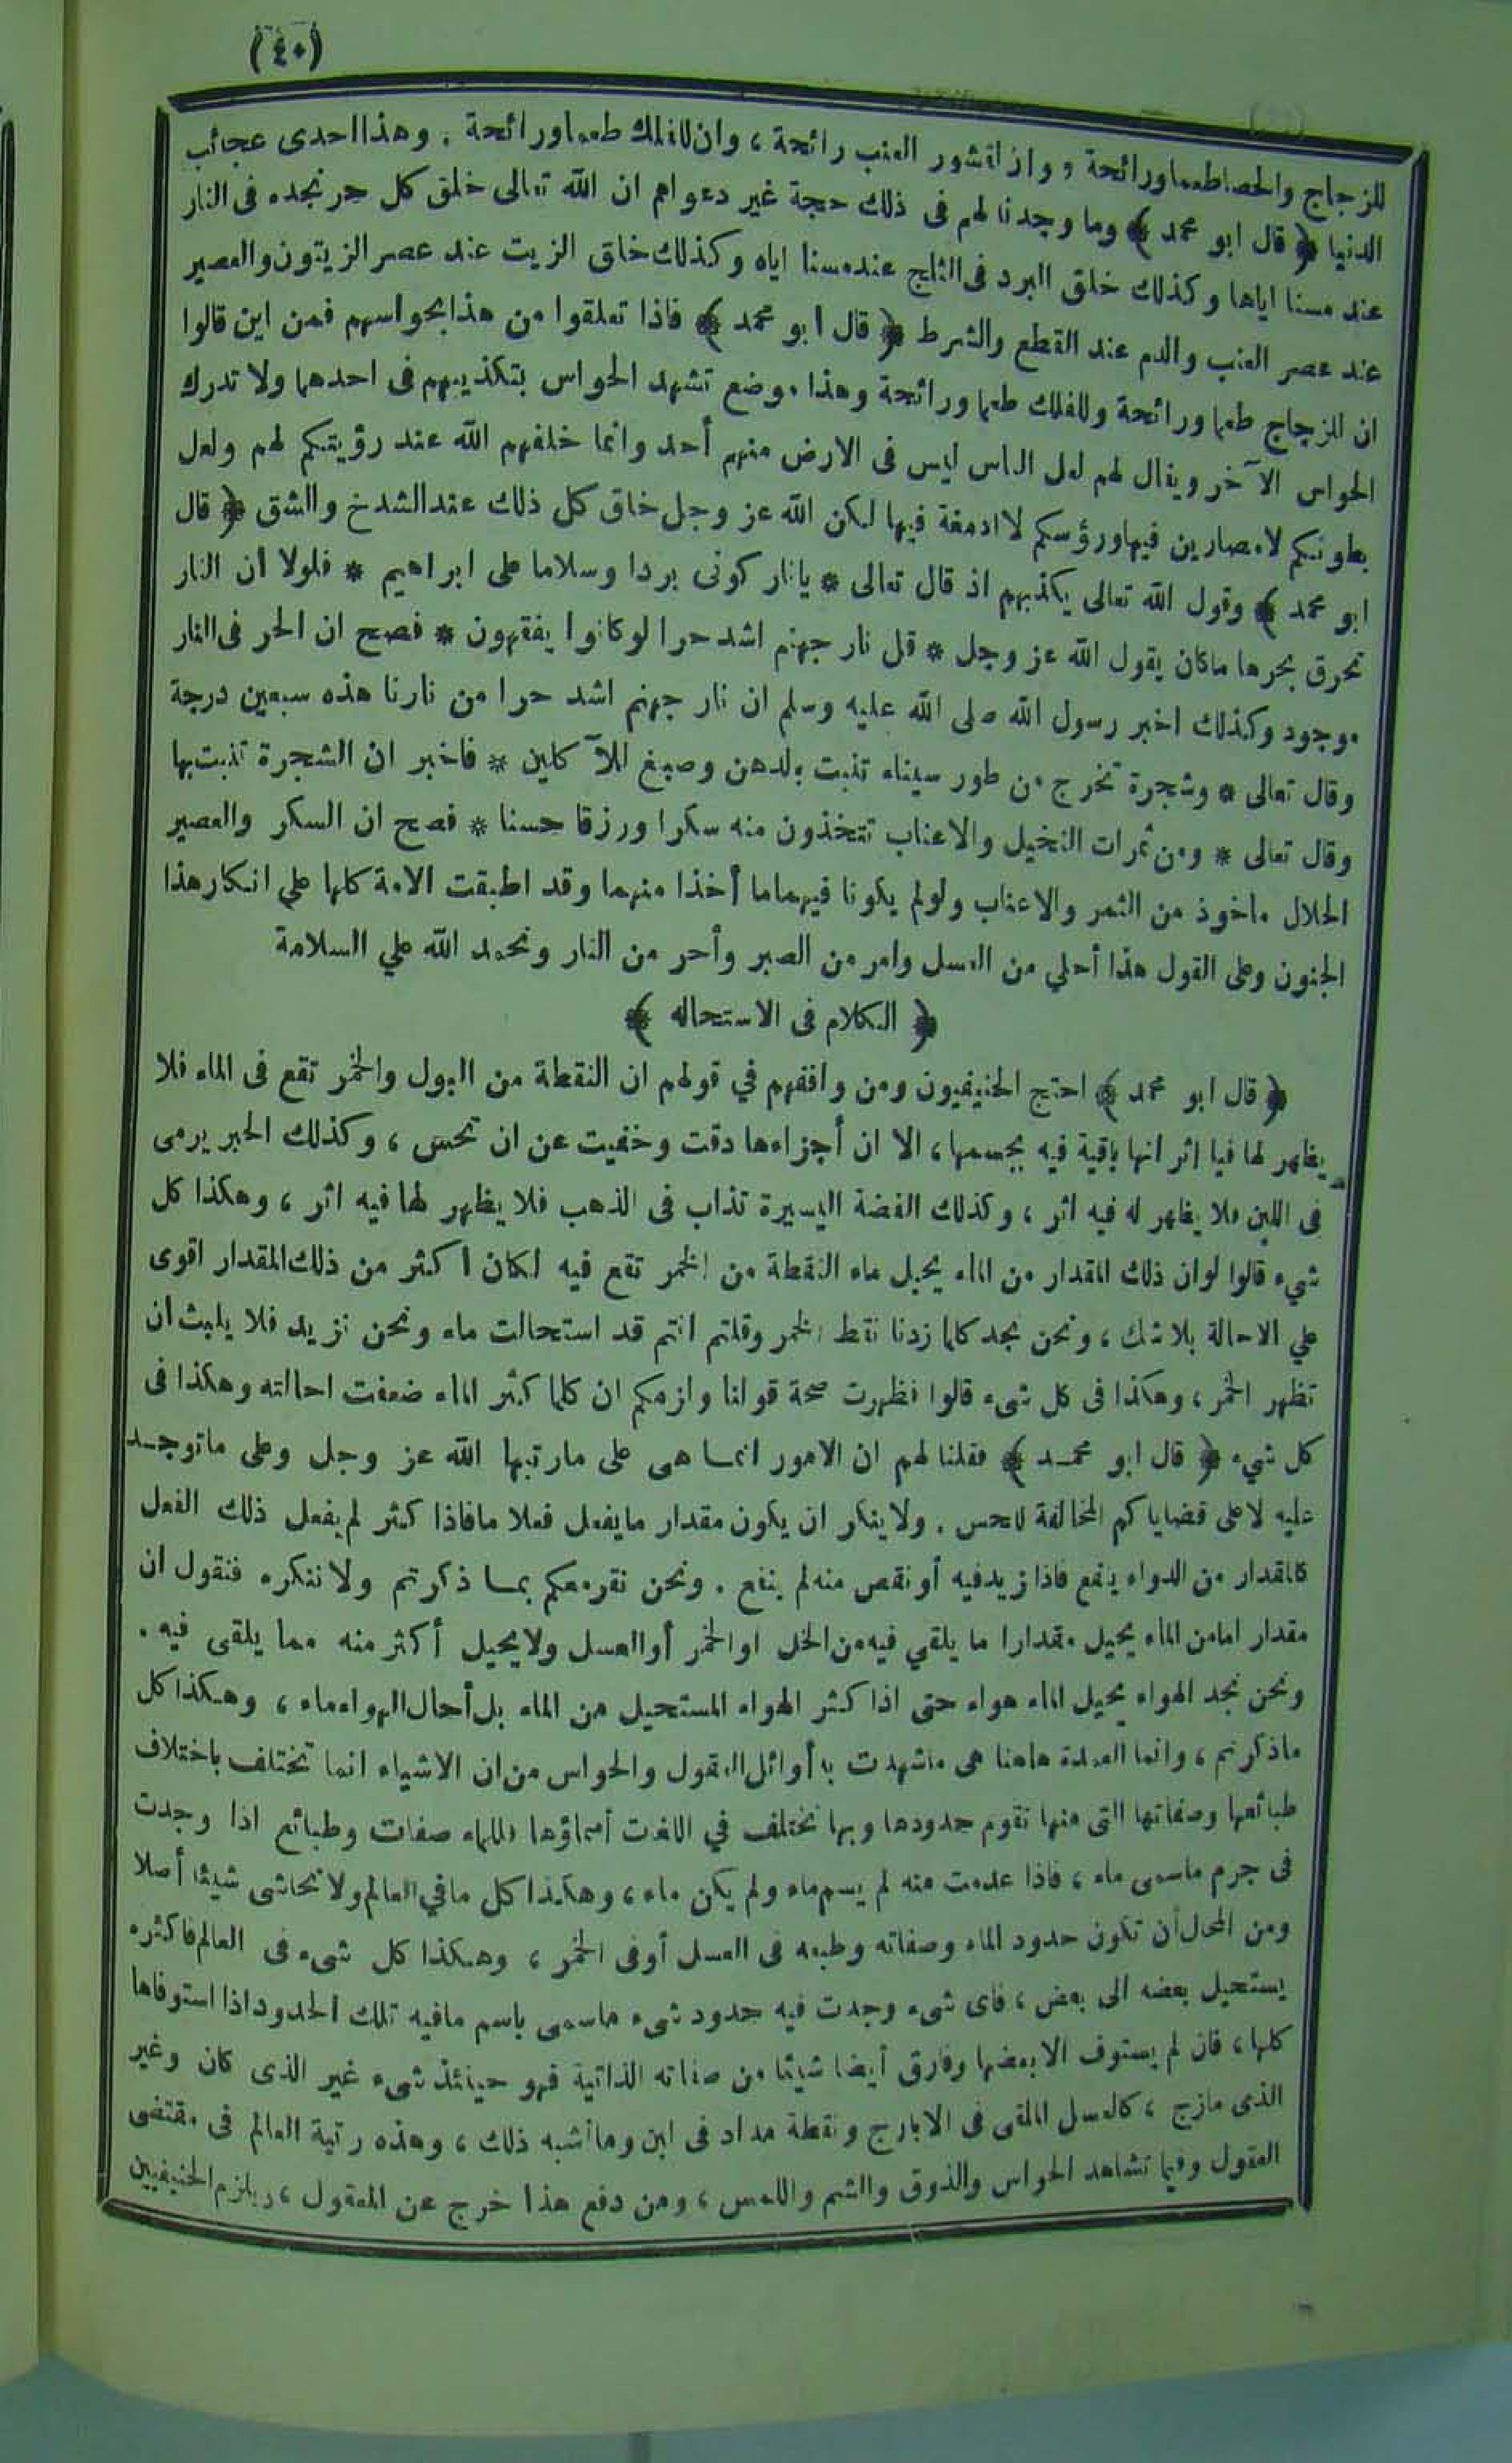 (٤٠)
للزجاج والحصاطعما ورائحة ، وان لقشور العنب رائحة ، وان للفلك طعما ورائحة . وهذا احدى عجائب
الدنيا ﴿ قال ابو محمد ﴾ وما وجدنا لهم فى ذلك حجة غير دعواهم ان الله تعالى خلق كل حر نجده فى النار
عند مسنا اياها وكذلك خلق البرد فى الثلج عند مسنا اياه وكذلك خلق الزيت عند عصر الزيتون والعصير
عند عصر العنب والدم عند القطع والشرط ﴿ قال ابو محمد ﴾ فاذا تعلقوا من هذا بحواسهم فمن اين قالوا
ان للزجاج طعما ورائحة وللفلك طعما ورائحة وهذا موضع تشهد الحواس بتكذيبهم فى احدهما ولا تدرك
الحواس الآخر ويقال لهم لعل الناس ليس فى الارض منهم أحد وانما خلقهم الله عند رؤيتكم لهم ولعل
بطونكم لا مصارين فيها ورؤسكم لا ادمغة فيها لكن الله عز وجل خلق كل ذلك عند الشدخ والشق ﴿ قال
ابو محمد ﴾ وقول الله تعالى يكذبهم اذ قال تعالى * يانار كونى بردا وسلاما على ابراهيم * فلولا ان النار
تحرق بحرها ما كان يقول الله عز وجل * قل نار جهنم اشد حرا لو كانوا يفقهون * فصح ان الحر فى النار
موجود وكذلك اخبر رسول الله صلى الله عليه وسلم ان نار جهنم اشد حرا من نارنا هذه سبعين درجة
وقال تعالى * وشجرة تخرج من طور سيناء تنبت بالدهن وصبغ للآكلين * فاخبر ان الشجرة تنبت بها
وقال تعالى * ومن ثمرات النخيل والاعناب تتخذون منه سكرا ورزقا حسنا * فصح ان السكر والعصير
الحلال مأخوذ من الثمر والاعناب ولو لم يكونا فيهما ما أخذا منهما وقد اطبقت الامة كلها علي انكار هذا
الجنون وعلى القول هذا أحلي من العسل وامر من الصبر وأحر من النار ونحمد الله علي السلامة
﴿ الكلام فى الاستحاله ﴾
﴿ قال ابو محمد ﴾ احتج الحنيفيون ومن وافقهم في قولهم ان النقطة من البول والخمر تقع فى الماء فلا
يظهر لها فيا اثر انها باقية فيه بجسمها ، الا ان أجزاءها دقت وخفيت عن ان تحس ، وكذلك الحبر يرمى
فى اللبن فلا يظهر له فيه اثر ، وكذلك الفضة اليسيرة تذاب فى الذهب فلا يظهر لها فيه اثر ، وهكذا كل
شيء قالوا لو ان ذلك المقدار من الماء يحيل ماء النقطة من الخمر تقع فيه لكان اكثر من ذلك المقدار اقوى
علي الاحالة بلا شك ، ونحن نجد كلما زدنا نقط الخمر وقلتم انتم قد استحالت ماء ونحن نزيد فلا يلبث ان
تظهر الخمر ، وهكذا فى كل شىء قالوا فظهرت صحة قولنا ولزمكم ان كلما كثر الماء ضعفت احالته وهكذا فى
كل شيء ﴿ قال ابو محمد ﴾ فقلنا لهم ان الامور انما هى على مارتبها الله عز وجل وعلى ماتوجد
عليه لا على قضاياكم المخالفة للحس . ولا ينكر ان يكون مقدار ما يفعل فعلا ما فاذا كثر لم يفعل ذلك الفعل
كالمقدار من الدواء ينفع فاذا زيد فيه أو نقص منه لم ينفع . ونحن نقرمعكم بما ذكرتم ولا ننكره فنقول ان
مقدار اما من الماء يحيل مقدارا ما يلقي فيه من الخل او الخمر أو العسل ولا يحيل أكثر منه مما يلقى فيه .
ونحن نجد الهواء يحيل الماء هواء حتى اذا كثر الهواء المستحيل من الماء بل أحال الهواء ماء ، وهكذا كل
ماذكرتم ، وانما العمدة هاهنا هى ماشهدت به أوائل العقول والحواس من ان الاشياء انما تختلف باختلاف
طبائعها وصفاتها التى منها تقوم حدودها وبها تختلف في اللغات أسماؤها فللماء صفات وطبائع اذا وجدت
فى جرم ماسمى ماء ، فاذا عدمت منه لم يسم ماء ولم يكن ماء ، وهكذا كل مافي العالم ولا نحاشى شيئا أصلا
ومن المحال أن تكون حدود الماء وصفاته وطبعه فى العسل أو فى الخمر ، وهكذا كل شىء فى العالم فاكثره
يستحيل بعضه الى بعض ، فاى شىء وجدت فيه حدود شىء ما سمى باسم مافيه تلك الحدود اذا استوفاها
كلها ، فان لم يستوف الا بعضها وفارق أيضا شيئا من صفاته الذاتية فهو حينئذ شىء غير الذى كان وغير
الذى مازج ، كالعسل الملقى فى الابارج ونقطة مداد فى لبن وما أشبه ذلك ، وهذه رتبة العالم فى مقتضى
العقول وفيما تشاهد الحواس والذوق والشم واللمس ، ومن دفع هذا خرج عن المعقول ، ويلزم الحنيفيين